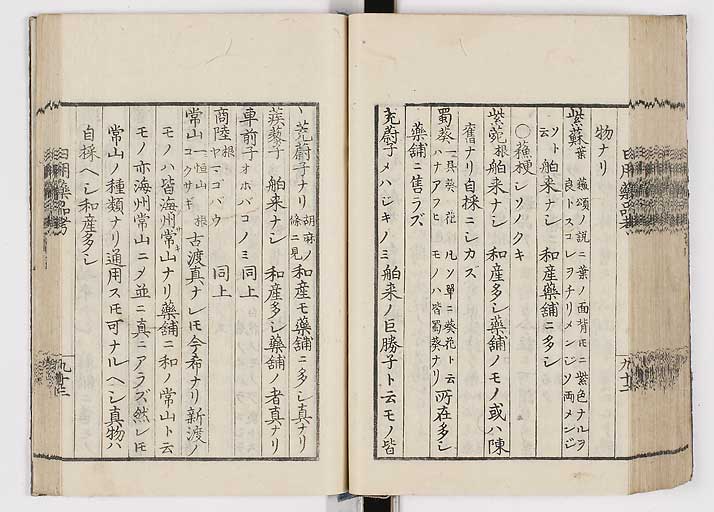 日用藥品考 九十二
物ナリ
紫蘇葉 蘓頌ノ説ニ葉ノ面背圧ニ紫色ナルヲ良トスコレヲチリメンジソ両メンジ
ソト云 舶来ナシ 和産藥舗ニ多シ
〇蘓梗 シソノクキ
紫菀根 舶来ナシ 和産多シ藥舗ノモノ或ハ陳
舊ナリ自採ニシカズ
蜀葵 ハナアフヒ 凡ソ單ニ葵花ト云モノハ皆蜀葵ナリ 所在多シ
藥舗ニ售ラズ
茺蔚子 メハジキノミ 舶来ノ巨勝子ト云モノ皆
茺蔚子ナリ 胡麻ノ條ニ見 和産モ藥舗ニ多シ真ナリ
蒺藜子 舶来ナシ 和産多シ藥舗ノ者真ナリ
車前子 オホバコノミ 同上
商陸根 ヤマゴバウ 同上
常山 一恒山根 コクサギ 古渡真ナレ𪜈今希ナリ新渡ノ
モノハ皆海州常山ナリ藥舗ニ和ノ常山ト云
モノ亦海州常山ニメ並ニ真ニアラズ然レ𪜈
常山ノ種類ナリ通用ス𪜈可ナルヘシ真物ハ
自採ヘシ和産多シ
日用藥品考 九十三